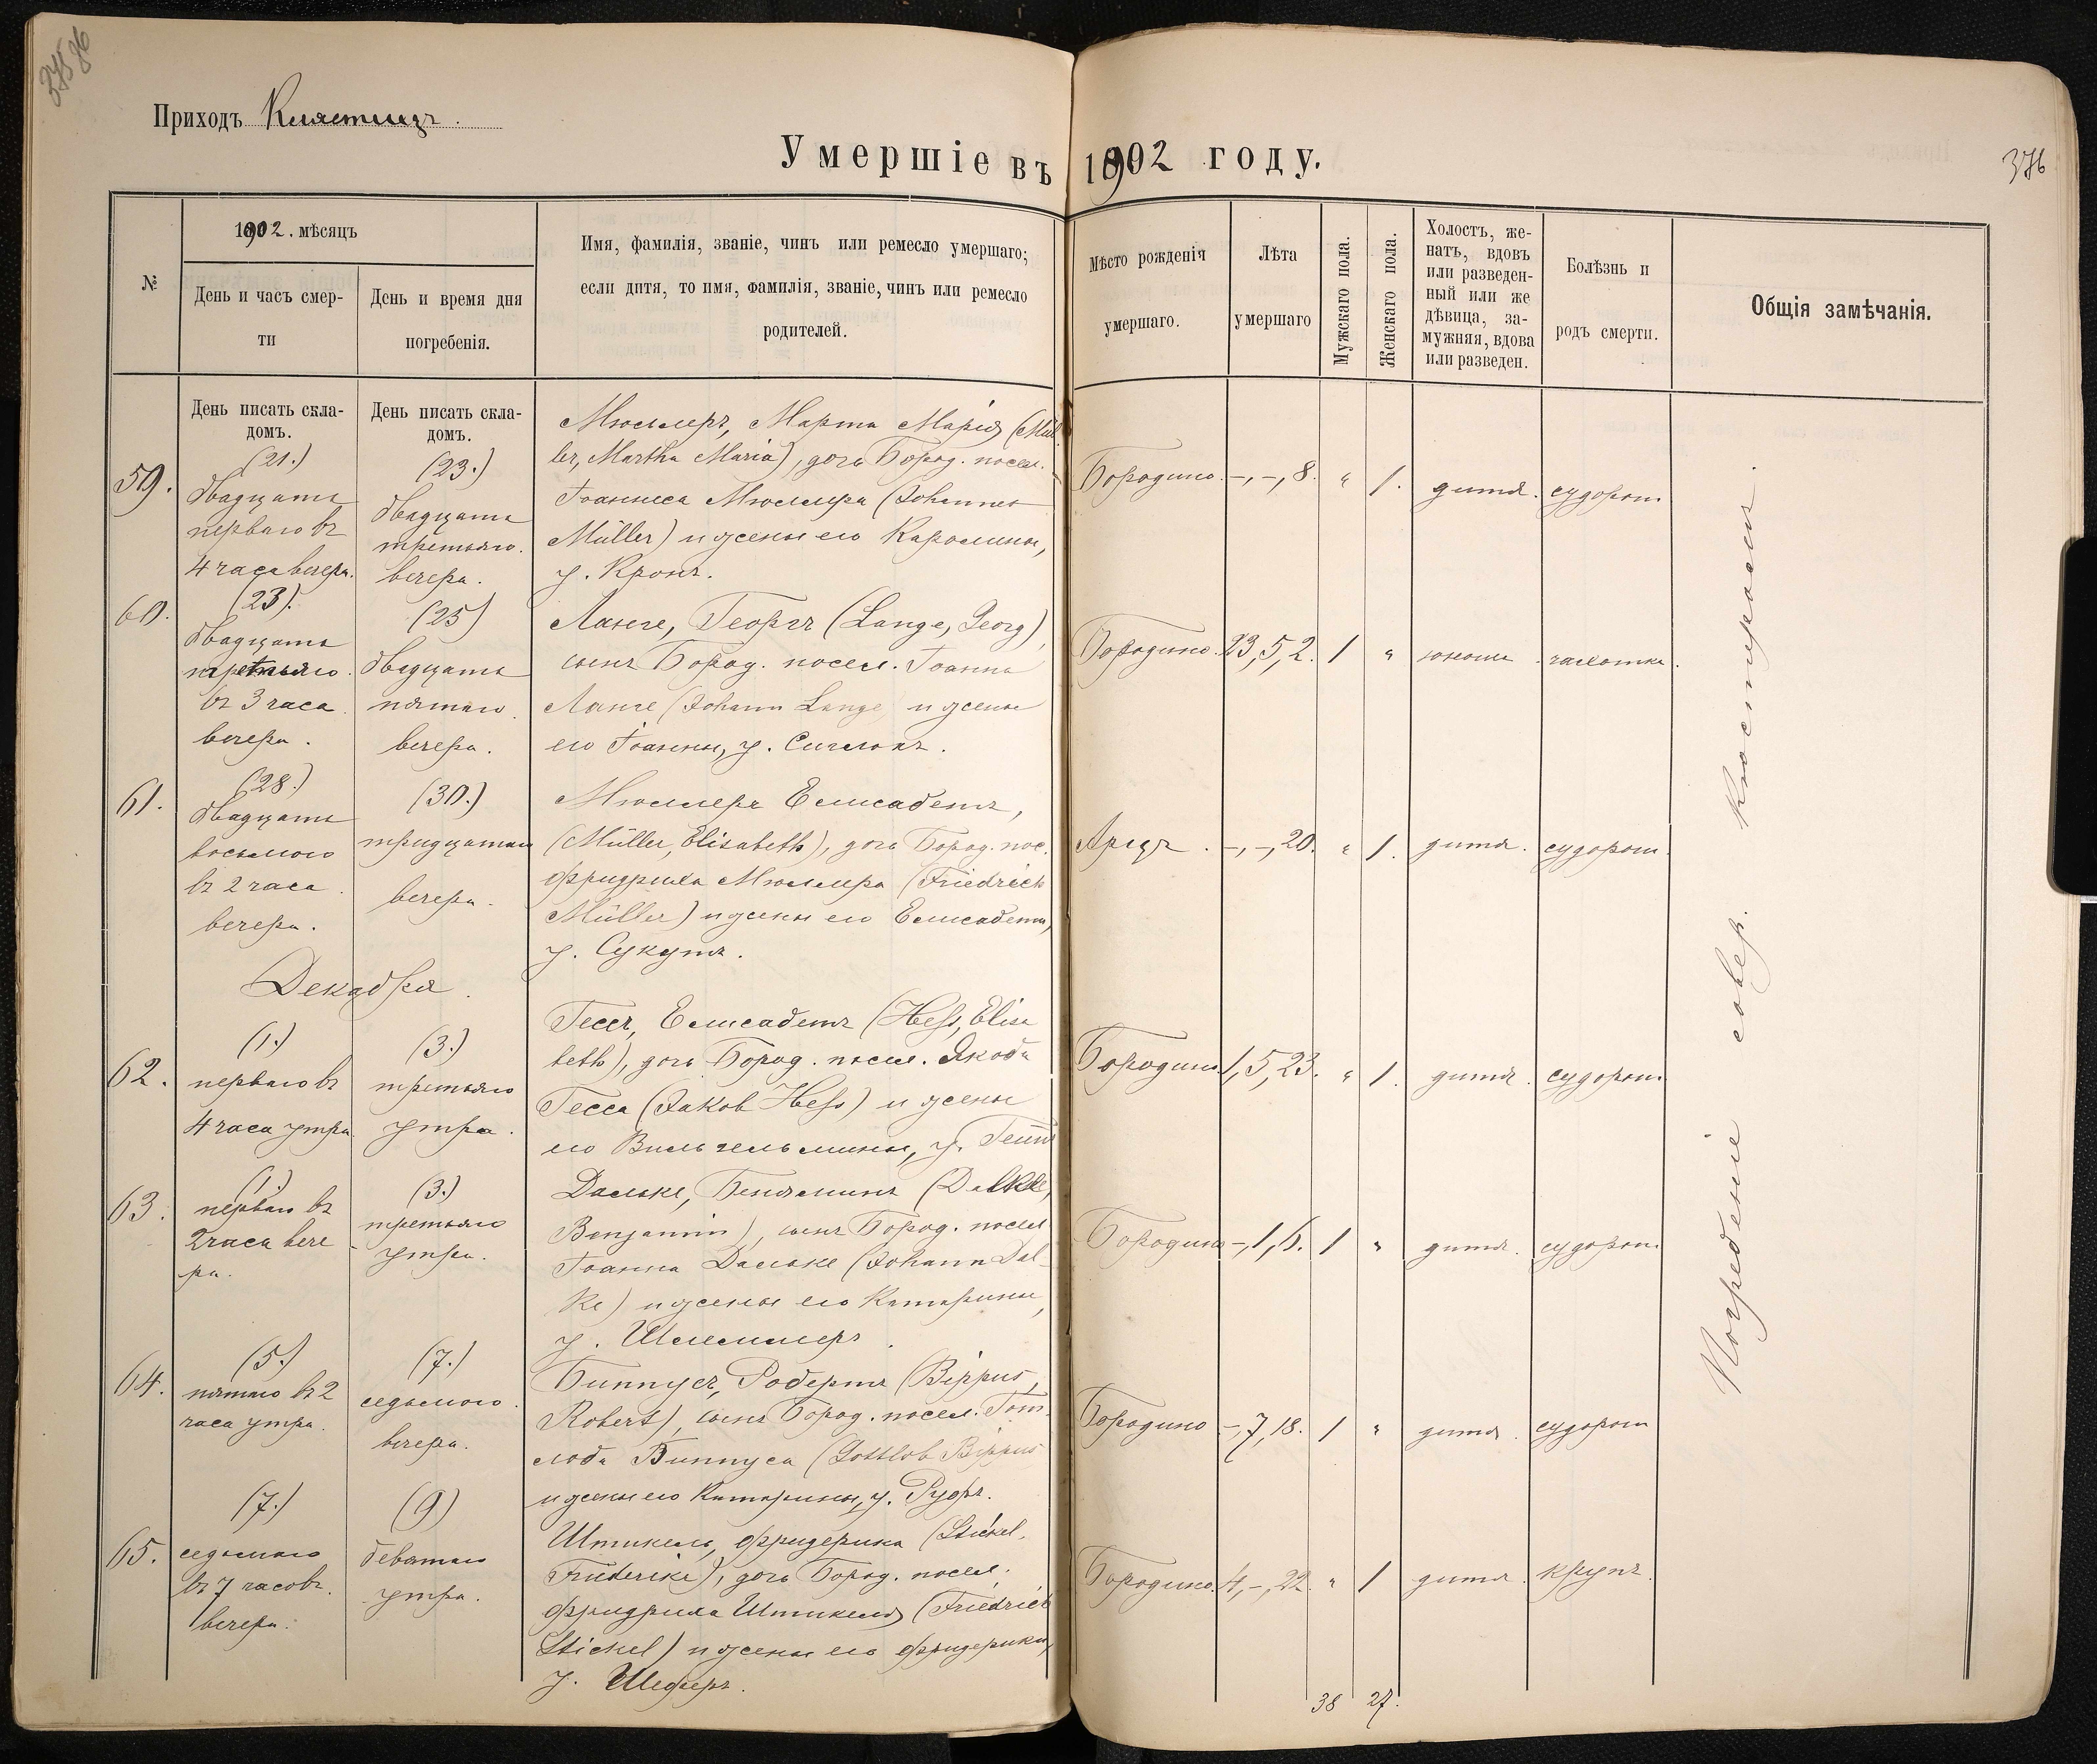 375 об
Приходъ Клястицъ.
Умершіе въ 1902 году.
376
№
1902. мѣсяцъ
День и часъ смер-
ти
День и время дня
погребенія.
Имя, фамилія, званіе, чинъ или ремесло умершаго;
если дитя, то имя, фамилія, званіе, чинъ или ремесло
родителей.
Мѣсто рожденія
умершаго.
Лѣта
умершаго
Мужскаго пола.
Женскаго пола.
Холостъ, же-
натъ, вдовъ
или разведен-
ный или же
дѣвица, за-
мужняя, вдова
или разведен.
Болѣзнь и
родъ смерти.
Общія замѣчанія.
День писать скла-
домъ.
День писать скла-
домъ.
59.
(21.)
двадцать
перваго въ
4 часа вечера.
(23.)
двадцать
третьяго.
вечера.
Мюллеръ, Марта Марія (Mül-
ler, Martha Maria), дочь Бород. посел.
Іоаннеса Мюллера (Johannes
Müller) и жены его Каролины,
у. Кронъ.
Бородино. -, -, 8. " 1. дитя. судорош
60.
(23).
двадцать
третьяго.
въ 3 часа
вечера.
(25)
двадцать
пятаго.
вечера.
Ланге, Георгъ (Lange, Georg),
сынъ Бород. посел. Іоанна
Ланге (Johann Lange и жены
его Іоанны, у. Сиглокъ.
Бородино. 23, 5, 2. 1 " юноша. чахотка.
61.
(28.)
двадцать
восьмого
въ 2 часа
вечера.
(30.)
тридцатаго
вечера.
Мюллеръ Елисабетъ,
(Müller, Elisabeth), дочь Бород. пос.
Фридриха Мюллера (Friedrich
Müller) и жены его Елисабеты,
у. Сукутъ.
Арцзъ. -, -, 20. " 1. дитя. судорош.
Декабря.
62.
(1.)
перваго въ
4 часа утра.
(3.)
третьяго
утра.
Гессъ, Елисабетъ (Heß, Elisa
beth), дочь Бород. посел. Якоба
Гесса (Jakob Heß) и жены
его Вильгельмины, у.
Бородино 1, 5, 23. " 1. дитя. судорош.
63.
(1.)
перваго въ
2 часа вече
ра.
(3.)
третьяго
утра.
Дальке, Беньяминъ (Dalke,
Benjamin), сынъ Бород. посел
Іоанна Дальке (Johann Dal-
ke) и жены его Катарины,
у. Шлеммеръ.
Бородино -, 1, 6. 1 " дитя. судорош.
64.
(5.)
пятаго въ 2
часа утра.
(7.)
седьмого.
вечера.
Биппусъ, Робертъ (Bippus,
Robert), сынъ Бород. посел. Гот-
лоба Биппуса (Gottlob Bippus
и жены его Катарины, у. Руфъ.
Бородино -, 7, 18. 1 " дитя. судорош
65.
(7.)
седьмаго
въ 7 часовъ.
вечера.
(9)
девятаго
утра.
Штикель, Фридерика (Stickel,
Friderike), дочь Бород. посел.
Фридриха Штикеля (Friedrich
Stickel) и жены его Фридерики,
у. Шеферъ.
Бородино. 4, -, 22. " 1 дитя. крупъ.
38 27.
Погребеніе совер. Кюстеромъ.